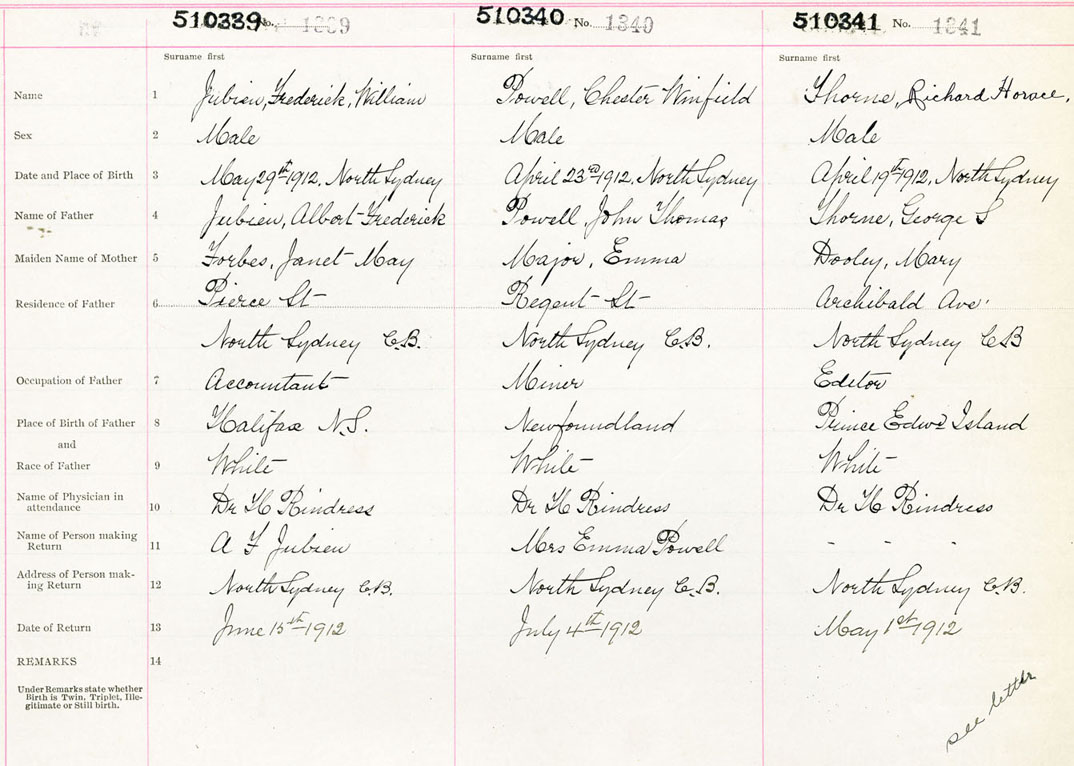 510339 No. 1339 510340 No. 1340 510341 No. 1341
Surname first Surname first Surname first
Name 1 Jubien, Frederick, William Powell, Chester Winfield Thorne, Richard Horace,
Sex 2 Male Male Male
Date and Place of Birth 3 May 29th 1912, North Sydney April 23rd 1912, North Sydney April 19th 1912, North Sydney
Name of Father 4 Jubien, Albert Frederick Powell, John Thomas Thorne, George S
Maiden Name of Mother 5 Forbes, Janet May Major, Emma Dooley, Mary
Residence of Father 6 Pierce St Regent St Archibald Ave
North Sydney C.B. North Sydney C.B. North Sydney C B
Occupation of Father 7 Accountant Miner Editor
Place of Birth of Father 8 Halifax N.S. Newfoundland Prince Edwd Island
and
Race of Father 9 White White White
Name of Physician in
attendance 10 Dr H Rindress Dr H Rindress Dr H Rindress
Name of Person making
Return 11 A F Jubien Mrs Emma Powell - - -
Address of Person mak-
ing Return 12 North Sydney C.B. North Sydney C.B. North Sydney C.B.
Date of Return 13 June 15th 1912 July 4th 1912 May 1st 1912
REMARKS 14
Under Remarks state whether
Birth is Twin, Triplet, Ille-
gitimate or Still birth.
see letter